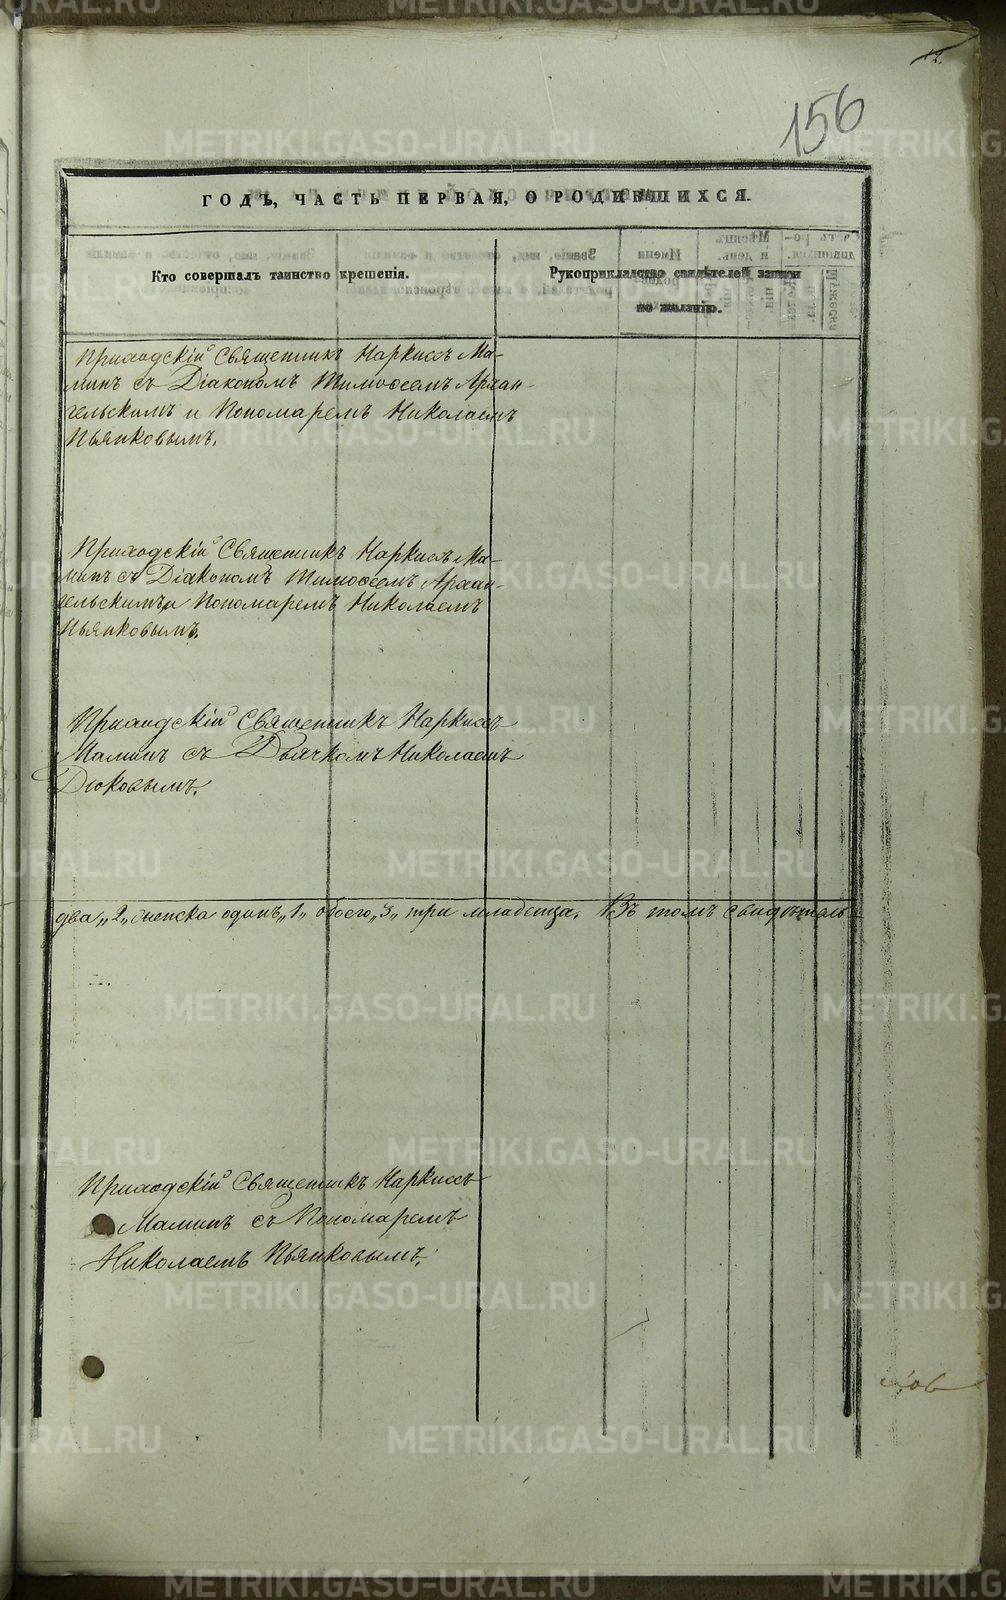 12.
156
ГОДЪ, ЧАСТЬ ПЕРВАЯ, О РОДИВШИХСЯ.
Кто совершалъ таинство крещенія.
Рукоприкладство свидѣтелей записи
по желанію.
Приходскій Священникъ Наркисъ Ма-
минъ съ Діакономъ Тимофеемъ Архан-
гельскимъ и Пономаремъ Николаемъ
Пьянковымъ.
Приходскій Священникъ Наркисъ Ма-
минъ съ Діакономъ Тимофеемъ Архан-
гельскимъ и Пономаремъ Николаемъ
Пьянковымъ.
Приходскій Священникъ Наркисъ
Маминъ съ Дьячкомъ Николаемъ
Дюковымъ.
два „2„ женска одинъ „1„ обоего „3„ три младенца. Въ томъ свидѣтель
Приходскій Священникъ Наркисъ
Маминъ съ Пономаремъ
Николаемъ Пьянковымъ.
METRIKI.GASO-URAL.RU